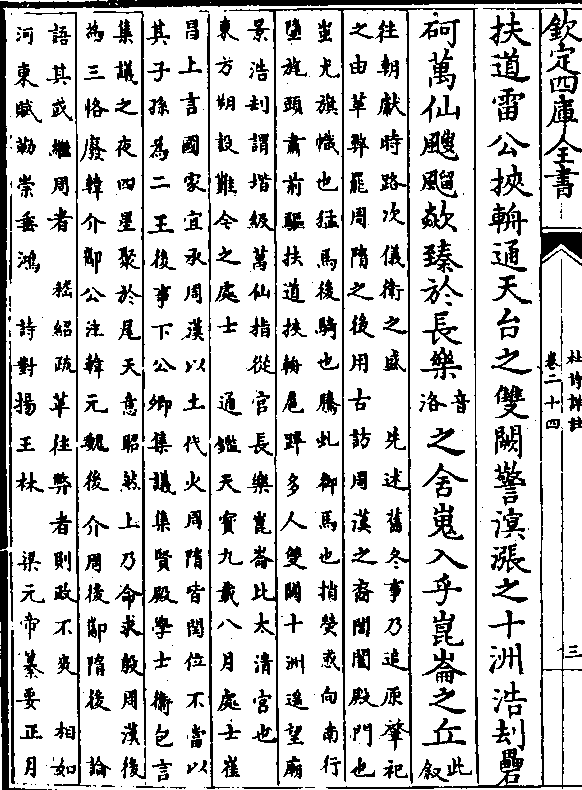 欽定四庫全書
杜詩詳註
卷二十四
三
扶道雷公挾輈通天台之雙闕警溟漲之十洲浩刦礨
砢萬仙颼飀欻臻於長樂音洛之舍嵬入乎崑崙之丘此叙
往朝獻時路次儀衛之盛 先述舊冬事乃追原肇祀
之由革弊罷周隋之後用古訪周漢之裔閶闔殿門也
蚩尤旗幟也猛馬後騎也騰虬御馬也指熒惑向南行
墮旄頭肅前驅扶道挾輈扈蹕多人雙闕十洲遥望廟
景浩刦謂堦級萬仙指從官長樂崑崙比太清宫也
東方朔設難令之處士 通鑑天寶九載八月處士崔
昌上言國家宜承周漢以土代火周隋皆閏位不當以
其子孫為二王後事下公卿集議集賢殿學士衛包言
集議之夜四星聚於尾天意昭然上乃命求殷周漢後
為三恪廢韓介酅公注韓元魏後介周後酅隋後 論
語其或繼周者 嵇紹疏革往弊者則政不爽 相如
河東賦勒崇垂鴻 詩對揚王休 梁元帝纂要正月